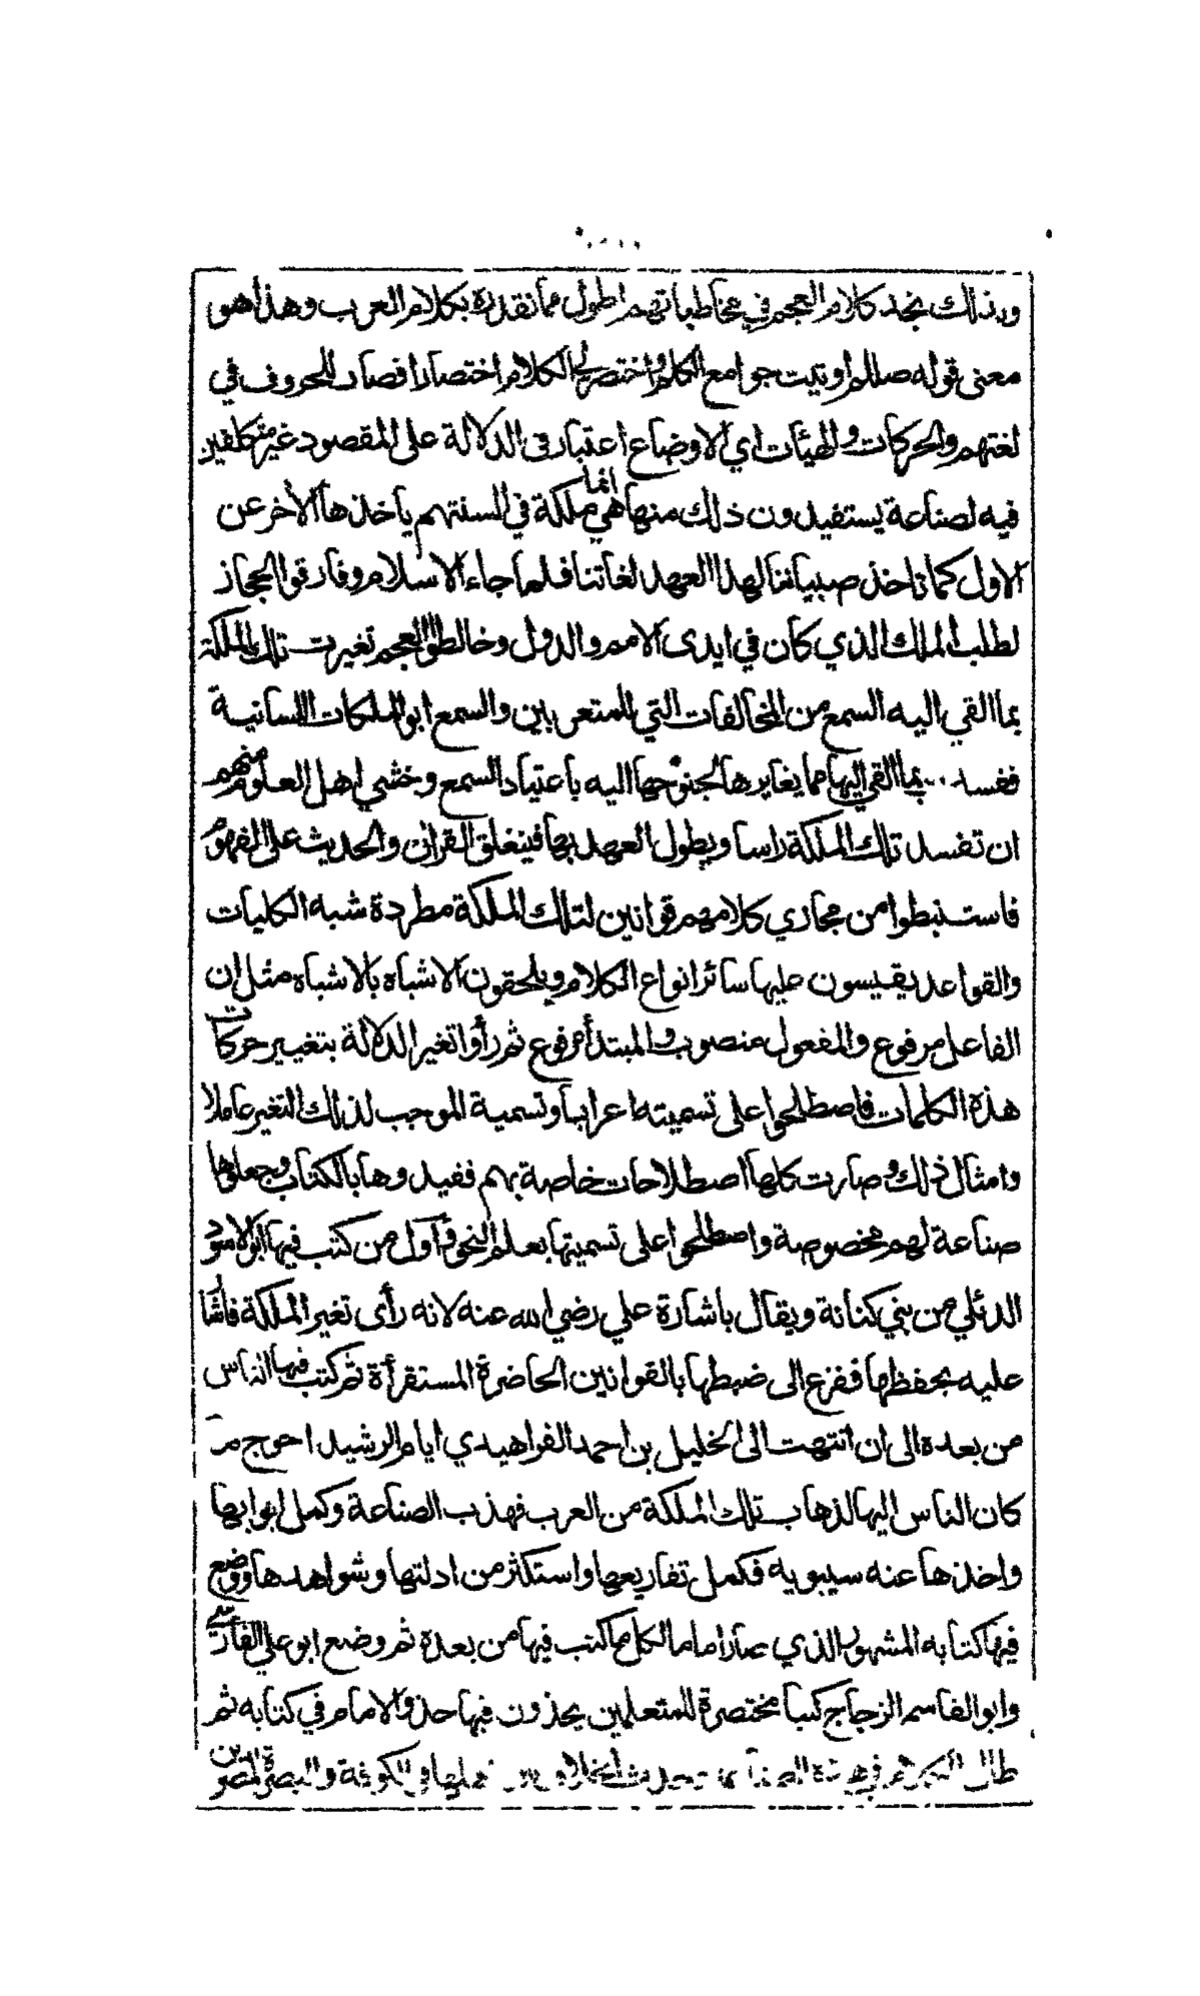 وبذلك نجد كلام العجم في مخاطباتهم اطول مما نقدره بكلام العرب وهذا هو
معنى قوله صلى الله اوتيت جوامع الكلم واختصر لي الكلام اختصارا فصار للحروف في
لغتهم والحركات والهيئات اي الاوضاع اعتبار في الدلالة على المقصود غير متكلفين
فيه لصناعة يستفيدون ذلك منها انما هي ملكة في السنتهم ياخذها الآخر عن
الاول كما تاخذ صبياننا لهذا العهد لغاتنا فلما جاء الاسلام وفارقوا الحجاز
لطلب الملك الذي كان في ايدى الامم والدول وخالطوا العجم تغيرت تلك الملكة
بما القي اليه السمع من المخالفات التي للمتعربين والسمع ابو الملكات اللسانية
ففسد .. بما القي اليها مما يغايرها لجنوحها اليه باعتياد السمع وخشي اهل العلوم منهم
ان تفسد تلك الملكة راسا ويطول العهد بها فينغلق القران والحديث على المفهوم
فاستنبطوا من مجاري كلامهم قوانين لتلك الملكة مطردة شبه الكليات
والقواعد يقيسون عليها سائر انواع الكلام ويلحقون الاشباه بالاشباه مثل ان
الفاعل مرفوع والمفعول منصوب والمبتدأ مرفوع ثم رأوا تغير الدلالة بتغيير حركات
هذه الكلمات فاصطلحوا على تسميته اعرابا وتسمية الموجب لذلك التغير عاملا
وامثال ذلك وصارت كلها اصطلاحات خاصة بهم فقيدوها بالكتاب وجعلوها
صناعة لهم مخصوصة واصطلحوا على تسميتها بعلم النحو واول من كتب فيها ابو الاسود
الدئلي من بني كنانة ويقال باشارة علي رضي الله عنه لانه رأى تغير الملكة فاشا
عليه بحفظها ففزع الى ضبطها بالقوانين الحاضرة المستقرأة ثم كتب فيها الناس
من بعده الى ان انتهت الى الخليل بن احمد الفراهيدي ايام الرشيد احوج مـ
كان الناس اليها لذهاب تلك الملكة من العرب فهذب الصناعة وكمل ابوابها
واخذها عنه سيبويه فكمل تفاريعها واستكثر من ادلتها وشواهدها ووضع
فيها كتابه المشهور الذي صار اماما لكل مما كتب فيها من بعده ثم وضع ابو علي الفارسي
وابو القاسم الزجاج كتبا مختصرة للمتعلمين يحذون فيها حذو الامام في كتابه ثم
طال الكلام في هذه الصناعة وحدث الخلاف اهلها في الكوفة والبصرة المصرين